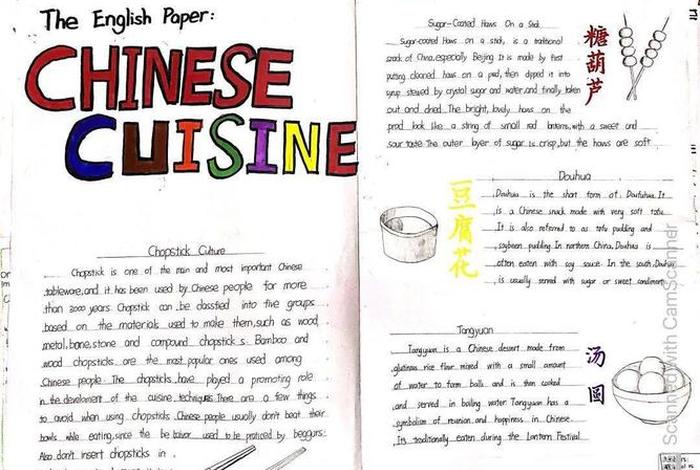 The English Paper:
CHINESE
CUISINE
Chopstick Culture
Chopstick is one of the main and most important Chinese
tableware,and it has been used by Chinese people for more
than 3000 years Chopstick can be classfied into five groups
based on the materials used to make them,such as wood,
metal,bone,stone and compound chopstick s. Bamboo and
wood chopsticks are the most popular ones used among
Chinese people The chopsticks have played a promoting role
in the development of the cuisine techniques There are a few things
to avoid when using chopsticks Chinese people usually don't beat their
bowls while eating,since the be haivor used to be practiced by beggars.
Also don't insert chopsticks in
Sugar-Coated Haws On a Stick
Sugar-coated Haws on a stick, is a traditional
snack of China,especially Beijing It is made by first
putting cleaned haws on a prod, then dipped it into
syrup stewed by crystal sugar and water,and finally taken
out and dried The bright, lovely haws on the
prod look like a string of small red lanterns,with a sweet and
sour taste The outer layer of sugar is crisp,but the haws are soft
糖葫芦
Douhua
Douhua is the short form of Doufuhua It
is a Chinese snack made with very soft tofu
It is also referred to as tofu pudding and
soybean pudding. In northern China, Douhua is
often eaten with soy sauce In the south,Douhua
is usually served with sugar or sweet condiment
豆腐花
Tangyuan
Tangyuan is a Chinese dessert made from
glutinous rice flour mixed with a small amount
of water to form balls and is then cooked
and served in boiling water Tangyuan has a
symbolism of reunion and happiness in Chinese
Its traditionally eaten during the Lantern Festival
汤圆
Scanned with CamScanner